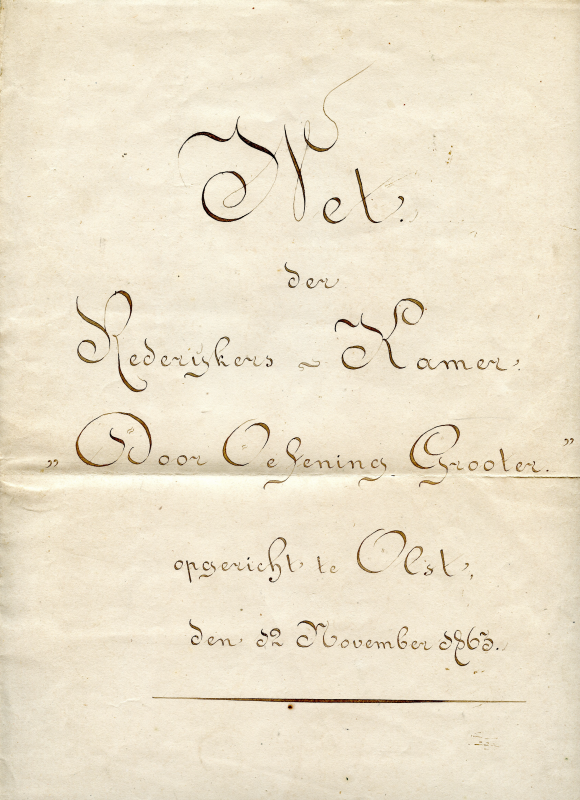 Wet.
der
Rederijkers - Kamer.
„Door Oefening Grooter.”
opgericht te Olst,
den 12 November 1865.